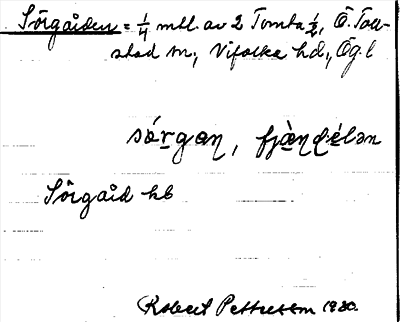 Sörgården = 1/4 mtl. av 2 Tomta 1/2, Ö. Tol-
stad sn, Vifolka hd, Ög. l
sórgaɳ, fjæ̀ɳḍélən
Sörgård hb
Robert Pettersson 1930.